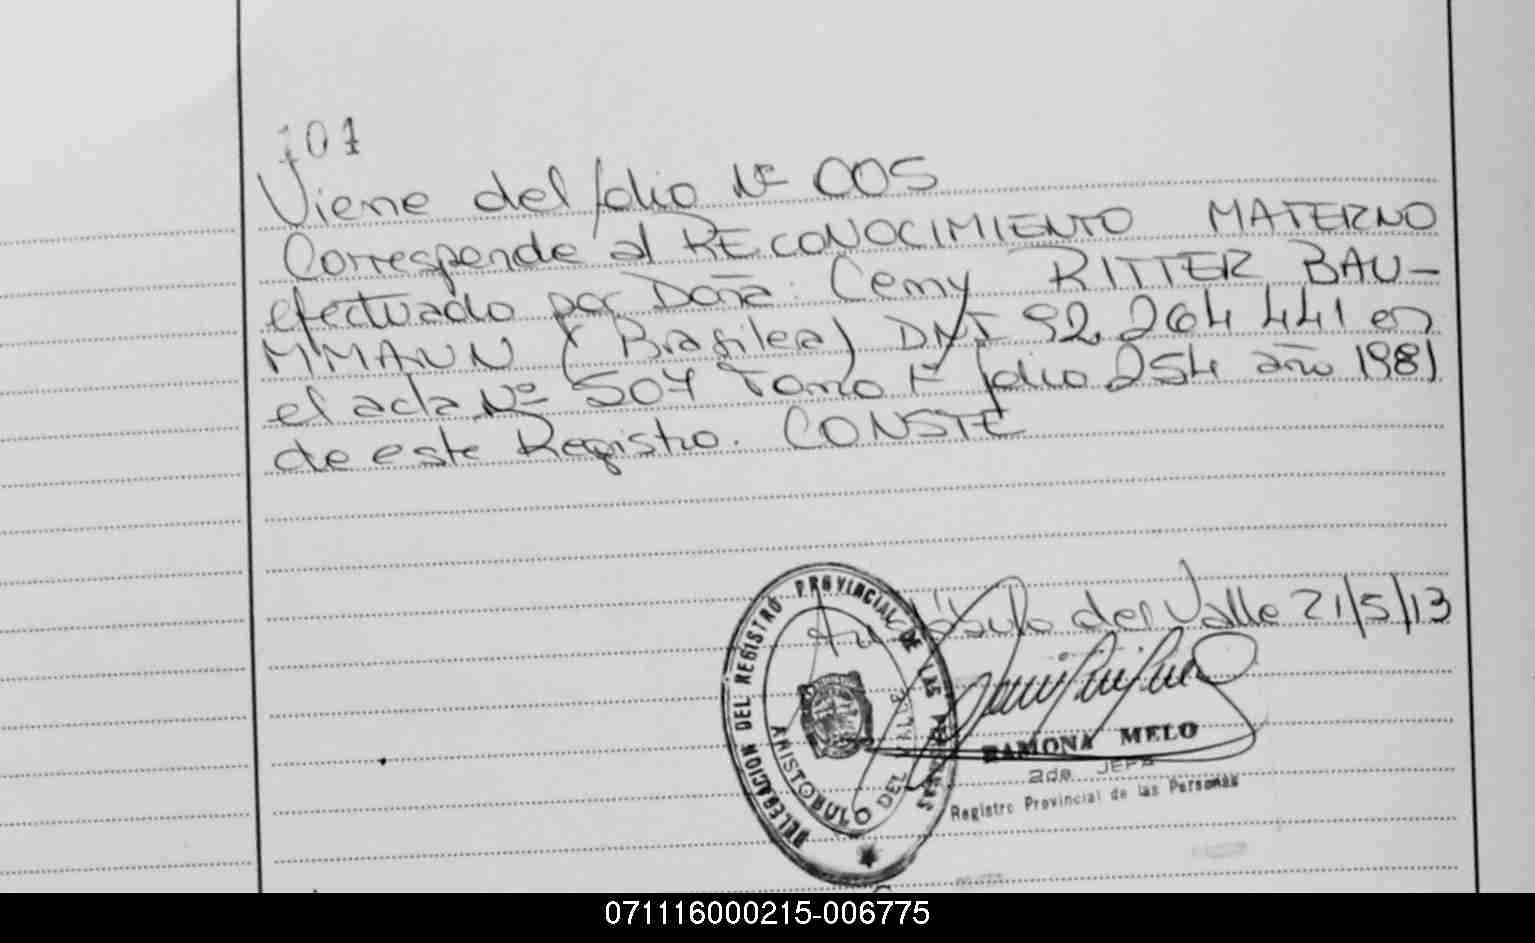 101
Viene del folio Nº 005
Corresponde al RECONOCIMIENTO MATERNO
efectuado por Doña: Cemy RITTER BAU-
MMANN (Brasilea) DNI 92.264.441 en
el acta Nº 507 Tomo folio 254 año 1981
de este Registro. CONSTE
Aristóbulo del Valle 21/5/13
DELEGACION DEL REGISTRO PROVINCIAL DE LAS PERSONAS
ARISTOBULO DEL VALLE
RAMONA MELO
2da JEFA
Registro Provincial de las Personas
071116000215-006775